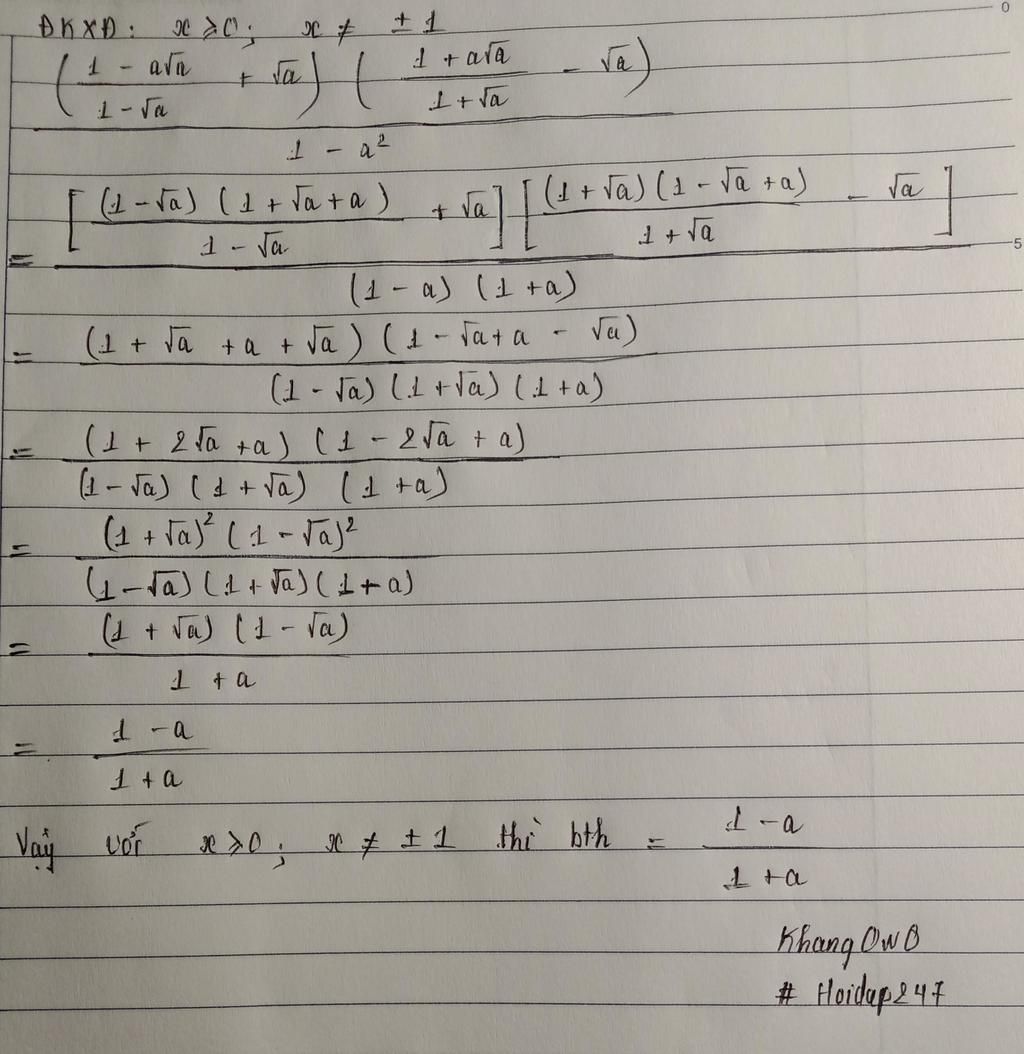 ĐKXĐ: x ≥ 0; x ≠ ± 1
((1 - a√a)/(1 - √a) + √a) ((1 + a√a)/(1 + √a) - √a)
1 - a²
= [((1 - √a) (1 + √a + a))/(1 - √a) + √a] [((1 + √a) (1 - √a + a))/(1 + √a) - √a]
(1 - a) (1 + a)
= (1 + √a + a + √a) (1 - √a + a - √a)
(1 - √a) (1 + √a) (1 + a)
= (1 + 2√a + a) (1 - 2√a + a)
(1 - √a) (1 + √a) (1 + a)
= (1 + √a)² (1 - √a)²
(1 - √a) (1 + √a) (1 + a)
= (1 + √a) (1 - √a)
1 + a
= 1 - a
1 + a
Vậy với x ≥ 0; x ≠ ± 1 thì bth = (1 - a)/(1 + a)
Khang OwO
# Hoidap247
0
5